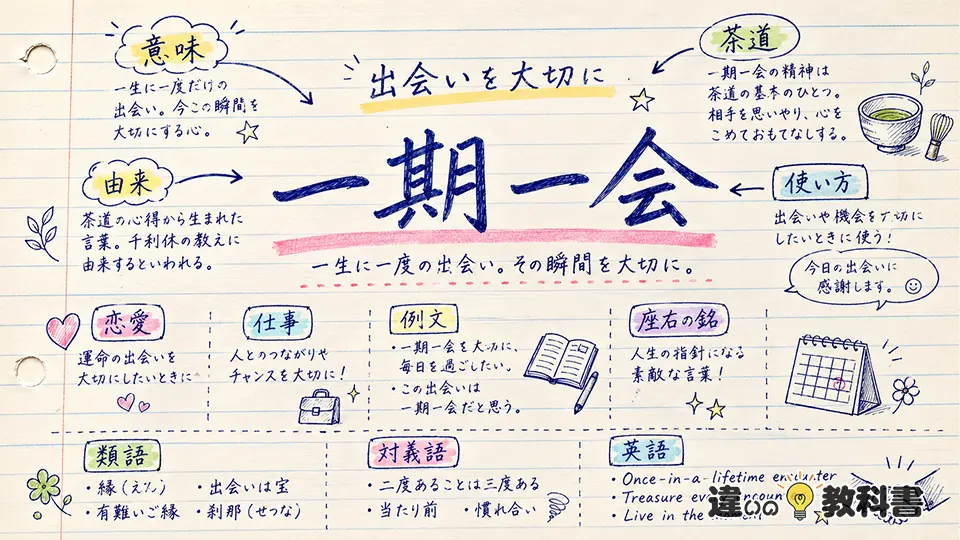 意味
一生に一度だけの
出会い。今この瞬間を
大切にする心。
出会いを大切に
茶道
一期一会の精神は
茶道の基本のひとつ。
相手を思いやり、心を
こめておもてなしする。
一期一会
一生に一度の出会い。その瞬間を大切に。
由来
茶道の心得から生まれた
言葉。千利休の教えに
由来するといわれる。
使い方
出会いや機会を切に
したいときに使う!
今日の出会いに
感謝します。
恋愛
運命の出会いを
大切にしたいときに
仕事
人とのつながりや
チャンスを大切に!
例文
・一期一会を大切に、
毎日を過ごしたい。
・この出会いは
一期一会だと思う。
座右の銘
人生の指針になる
素敵な言葉!
類語
・縁(えん)
・出会いは宝
・有難いご縁
・刹那(せつな)
対義語
・二度あることは三度ある
・当たり前
・慣れ合い
英語
・Once-in-a-lifetime
・Treasure
・Live in the
違いの教科書